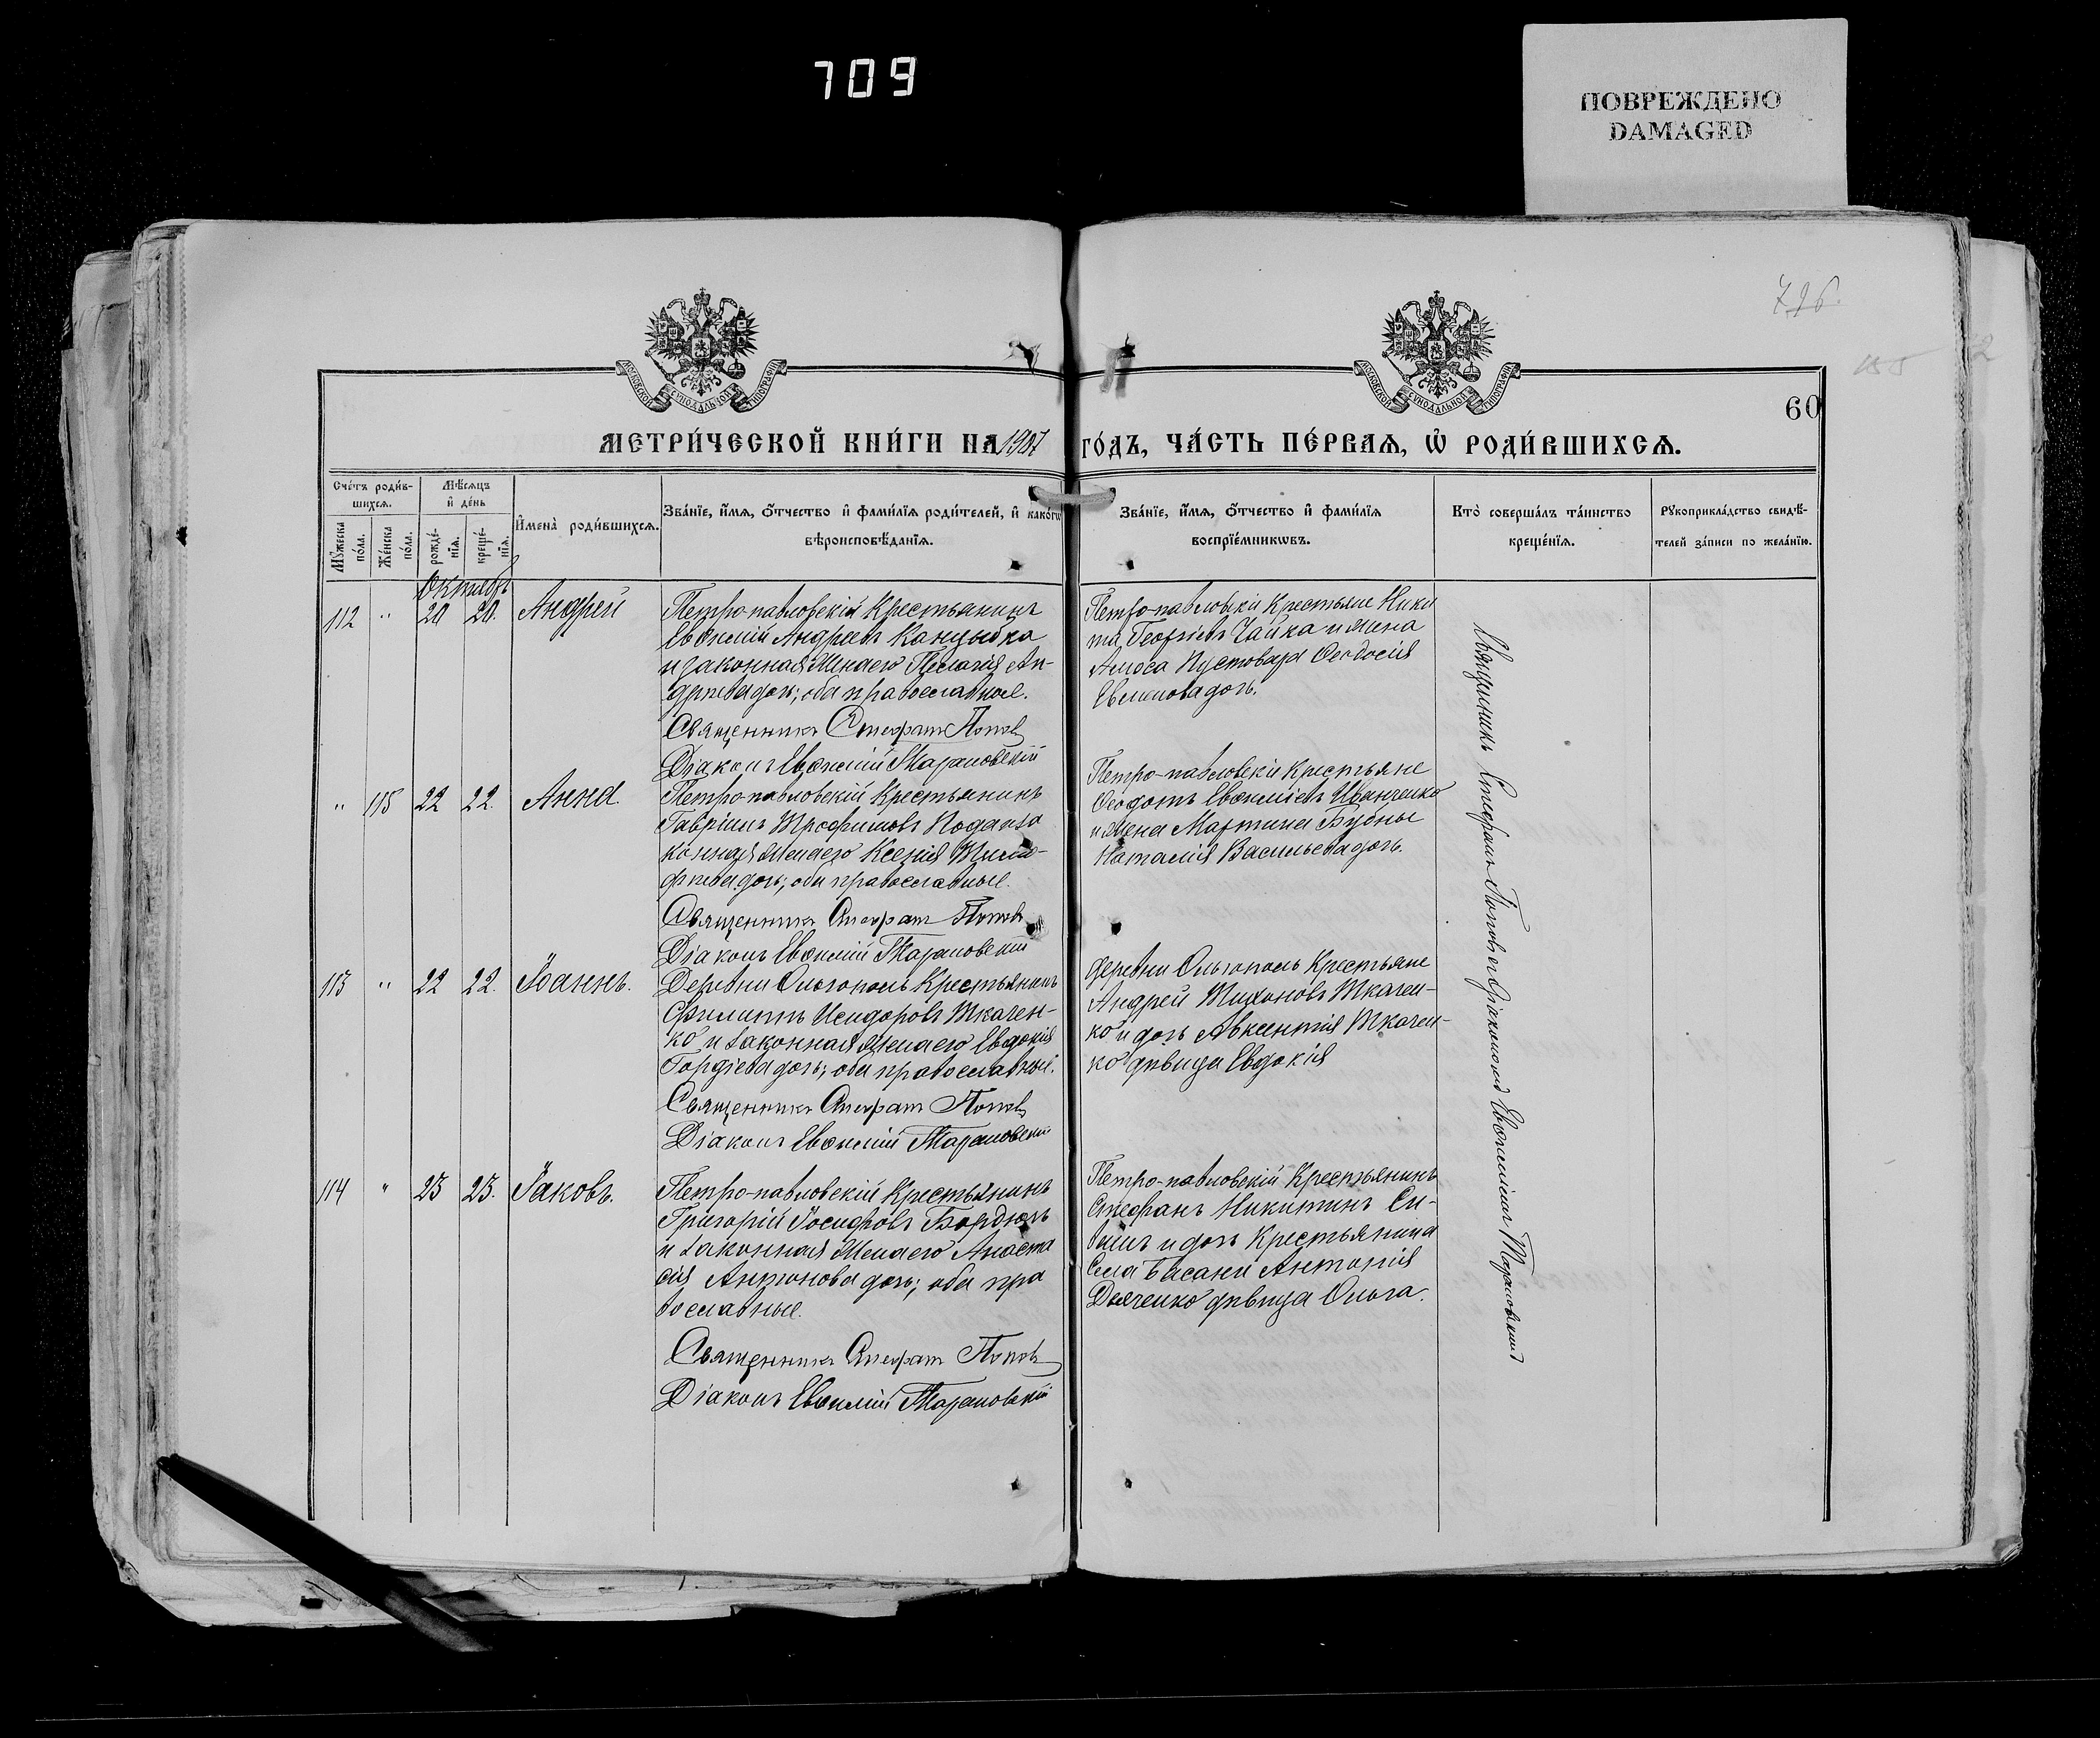 709
ПОВРЕЖДЕНО
DAMAGED
796.
60
МЕТРИ́ЧЕСКОЙ КНИ́ГИ НА 1907 ГО́ДЪ, ЧА́СТЬ ПЕ́РВАѦ, Ѡ҆ РОДИ́ВШИХСѦ.
Сче́тъ роди́в-
шихсѧ.
Мѣ́сѧцъ
и҆ де́нь
Мꙋ́жеска по́ла.
Же́нска по́ла.
рожде́-
нїѧ.
креще́-
нїѧ.
И҆мена̀ роди́вшихсѧ.
Зва́нїе, и҆́мѧ, ѻ҆́тчество и҆ фами́лїѧ роди́телей, и҆ како́гѡ
вѣроисповѣ́данїѧ.
Зва́нїе, и҆́мѧ, ѻ҆́тчество и҆ фами́лїѧ
воспрїе́мникѡвъ.
Кто̀ соверша́лъ та́инство
креще́нїѧ.
Рꙋкоприкла́дство свидѣ́-
телей за́писи по жела́нїю.
Октябрь
112 " 20 20. Андрей
Петропавловскій Крестьянинъ
Евѳимій Андреевъ Канцыбка
и законная жена его Пелагія Ан-
дреева дочь; оба православные.
Священникъ Стефанъ Поповъ
Діаконъ Евѳимій Тарановскій
Петро-павловскіе Крестьяне Ники
та Георгіевъ Чайка и жена
Амоса Пустовара Ѳеодосія
Евѳимова дочь.
" 115 22 22. Анна.
Петропавловскій Крестьянинъ
Гавріилъ Трофимовъ и за
конная жена его Ксенія Тимо-
феева дочь; оба православные.
Священникъ Стефанъ Поповъ
Діаконъ Евѳимій Тарановскій
Петро-павловскіе Крестьяне
Ѳеодотъ Евѳиміевъ Иванченко
и жена Мартина Бубны
Наталія Васильева дочь.
113 " 22 22. Іоаннъ.
Деревни Ольгополь Крестьянинъ
Филиппъ Исидоровъ Ткачен-
ко и законная жена его Евдокія
Гордіева дочь; оба православные.
Священникъ Стефанъ Поповъ
Діаконъ Евѳимій Тарановскій
Деревни Ольгополь Крестьяне
Андрей Тихоновъ Ткачен-
ко и дочь Авксентія Ткачен-
ко дѣвица Евдокія
114 " 23 23. Іаковъ.
Петро-павловскій Крестьянинъ
Григорій Іосифовъ Бордюгъ
и законная жена его Анаста
сія Антонова дочь; оба пра
вославные.
Священникъ Стефанъ Поповъ
Діаконъ Евѳимій Тарановскій
Петро-павловскій Крестьянинъ
Стефанъ Никитинъ Си-
и дочь Крестьянина
Села Басани Антонія
Дьяченко дѣвица Ольга.
Священникъ Стефанъ Поповъ съ Діакономъ Евѳиміемъ Тарановскимъ